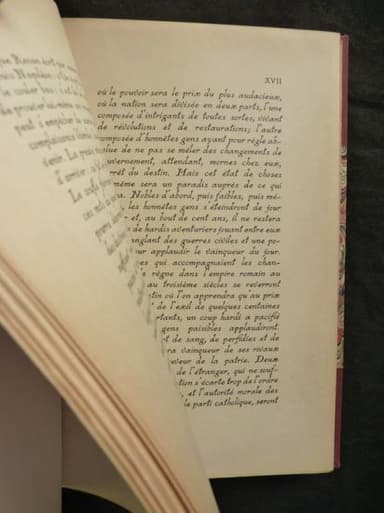 XVII
où le pouvoir sera le prix du plus audacieux,
où la nation sera divisée en deux parts, l'une
composée d'intrigants de toutes sortes, vivant
de révolutions et de restaurations; l'autre
composée d'honnêtes gens ayant pour règle ab-
solue de ne pas se mêler des changements de
uvernement, attendant, mornes chez eux,
rrêt du destin. Mais cet état de choses
même sera un paradis auprès de ce qui
ra. Nobles d'abord, puis faibles, puis mé-
s, les honnêtes gens s'éteindront de jour
r et, au bout de cent ans, il ne restera
e de hardis aventuriers jouant entre eux
anglant des guerres civiles et une po-
our applaudir le vainqueur du jour.
es qui accompagnaient les chan-
e règne dans l'empire romain au
au troisième siècles se reverront
tin où l'on apprendra qu'au prix
de l'exil de quelques centaines
rtants, un coup hardi a pacifié
gens paisibles applaudiront.
t de sang, de perfidies et de
ra vainqueur de ses rivaux
uveur de la patrie. Deux
de l'étranger, qui ne souf-
tion s'écarte trop de l'ordre
, et l'autorité morale des
le parti catholique, seront